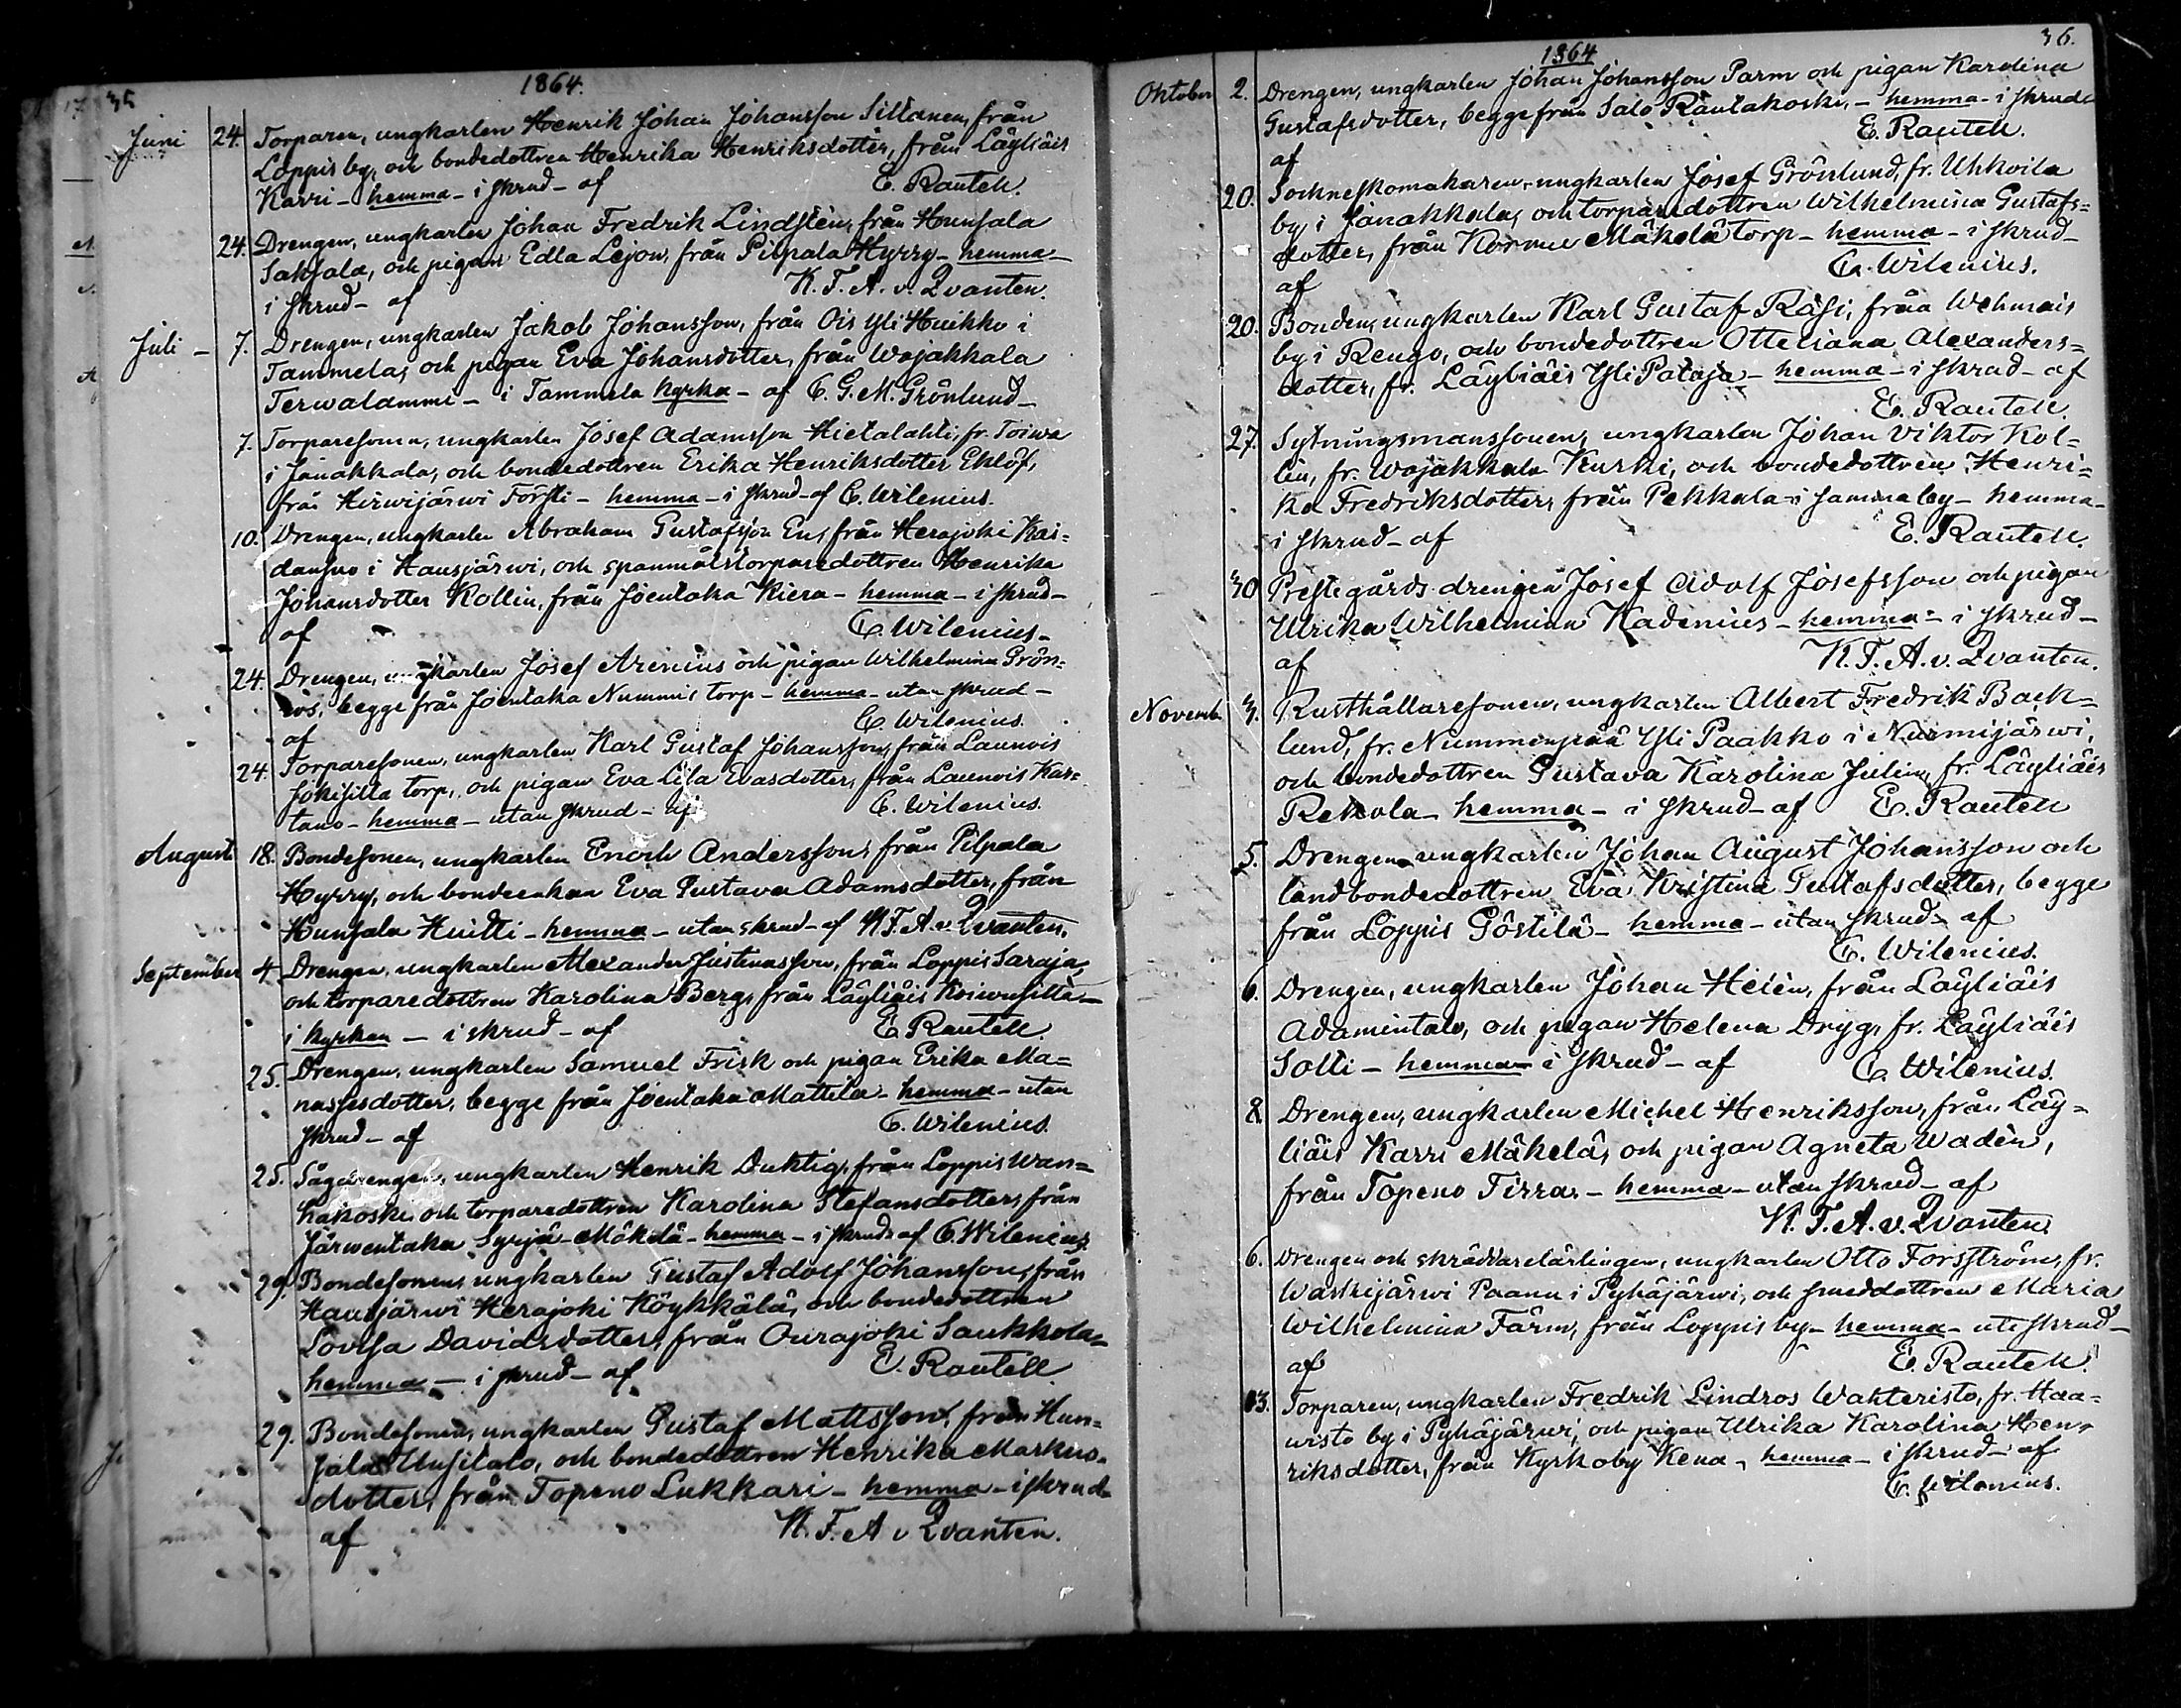 35
1864.
Juni 24. Torparen, ungkarlen Henrik Johan Johansson Sillanen, från
Loppis by, och bondedottren Henrika Henriksdotter, från Läyliäis
Karri - hemma - i skrud - af E. Rautell.
24. Drengen, ungkarlen Johan Fredrik Lindstén, från Hunsala
Saksala, och pigan Edla Lejon, från Pilpala Hyrry - hemma -
i skrud - af K. F. A. v. Qvanten.
Juli - 7. Drengen, ungkarlen Jakob Johansson, från Ois Yli Huikko i
Tammela, och pigan Eva Johansdotter, från Wojakkala
Terwalammi - i Tammela kyrka - af C. G. M. Grönlund -
7. Torparesonen, ungkarlen Josef Adamsson Hietalahti, fr. Toiwa
i Janakkala, och bondedottren Erika Henriksdotter Eklöf,
från Hirwijärwi Försti - hemma - i skrud - af C. Wilenius.
10. Drengen, ungkarlen Abraham Gustafsson En, från Herajoki Kai=
dansuo i Hausjärwi, och spanmålstorparedottren Henrika
Johansdotter Kollin, från Joentaka Kiera - hemma - i skrud -
af C. Wilenius -
24. Drengen, ungkarlen Josef Arenius och pigan Wilhelmina Grön=
roos, begge från Joentaka Nummis torp - hemma - utan skrud -
af C. Wilenius.
24. Torparesonen, ungkarlen Karl Gustaf Johansson, från Launois
Jokisilta torp, och pigan Eva Lisa Evasdotter, från Launois Kar=
tano - hemma - utan skrud - af C. Wilenius.
Augusti 18. Bondesonen, ungkarlen Enoch Andersson, från Pilpala
Hyrry, och bondeenkan Eva Gustava Adamsdotter, från
Hunsala Huitti - hemma - utan skrud - af K. F. A. v. Qvanten.
September 4. Drengen, ungkarlen Alexander Justinasson, från Loppis Saraja,
och torparedottren Karolina Berg, från Läyliäis Koiwusilta -
i kyrkan - i skrud - af E. Rautell.
25. Drengen, ungkarlen Samuel Frisk och pigan Erika Ma=
nassesdotter, begge från Joentaka Mattila - hemma - utan
skrud - af C. Wilenius.
25. Sågdrengen, ungkarlen Henrik Duktig, från Loppis Wan=
hakoski och torparedottren Karolina Stefansdotter, från
Järwentaka Syrjä-Mäkelä - hemma - i skrud - af C. Wilenius.
29. Bondesonen, ungkarlen Gustaf Adolf Johansson, från
Hausjärwi Herajoki Köykkälä, och bondedottren
Lovisa Davidsdotter, från Ourajoki Saukkola -
hemma - i skrud - af E. Rautell.
29. Bondesonen, ungkarlen Gustaf Mattsson, från Hun=
sala Uusitalo, och bondedottren Henrika Markus=
dotter, från Topeno Lukkari - hemma - i skrud -
af K. F. A. v. Qvanten.
36.
1864
Oktober 2. Drengen, ungkarlen Johan Johansson Parm och pigan Karolina
Gustafsdotter, begge från Salo Rautakoski, - hemma - i skrud -
af E. Rautell.
20. Sockneskomakaren, ungkarlen Josef Grönlund, fr. Uhkoila
by i Janakkala, och torparedottren Wilhelmina Gustafs=
dotter, från Kormu Mäkelä torp - hemma - i skrud -
af C. Wilenius.
20. Bonden, ungkarlen Karl Gustaf Räsi, från Wehmais
by i Rengo, och bondedottren Otteliana Alexanders=
dotter, fr. Läyliäis Yli Pataja - hemma - i skrud - af
E. Rautell
27. Sytningsmanssonen, ungkarlen Johan Viktor Kol=
lin, fr. Wojakkala Kurki, och bondedottren Henri=
ka Fredriksdotter, från Pekkala i samma by - hemma -
i skrud - af E. Rautell.
30 Prestegårds drengen Josef Adolf Josefsson och pigan
Ulrika Wilhelmina Kadenius - hemma - i skrud -
af K. F. A. v. Qvanten.
Novemb. 3. Rusthållaresonen, ungkarlen Albert Fredrik Back=
lund, fr. Nummenpää Yli Paakko i Nurmijärwi,
och bondedottren Gustava Karolina Julin, fr. Läyliäis
Rekola - hemma - i skrud - af E. Rautell
5. Drengen, ungkarlen Johan August Johansson och
landbondedottren Eva Kristina Gustafsdotter, begge
från Loppis Göstilä - hemma - utan skrud - af
C. Wilenius.
6. Drengen, ungkarlen Johan Heién, från Läyliäis
Adamintalo, och pigan Helena Dryg, fr. Läyliäis
Solli - hemma - i skrud - af C. Wilenius.
8. Drengen, ungkarlen Michel Henriksson, från Läy=
liäis Karri Mäkelä, och pigan Agneta Wadén,
från Topeno Tirra - hemma - utan skrud - af
K. F. A. v. Qvanten.
6. Drengen och skräddarelärlingen, ungkarlen Otto Forsström, fr.
Waskijärwi Paanu i Pyhäjärwi, och smeddottren Maria
Wilhelmina Färm, från Loppis by - hemma - ute skrud -
af E. Rautell.
13. Torparen, ungkarlen Fredrik Lindros Wahteristo, fr. Haa=
wisto by i Pyhäjärwi, och pigan Ulrika Karolina Hen=
riksdotter, från Kyrkoby Kena - hemma - i skrud - af
C. Wilenius.